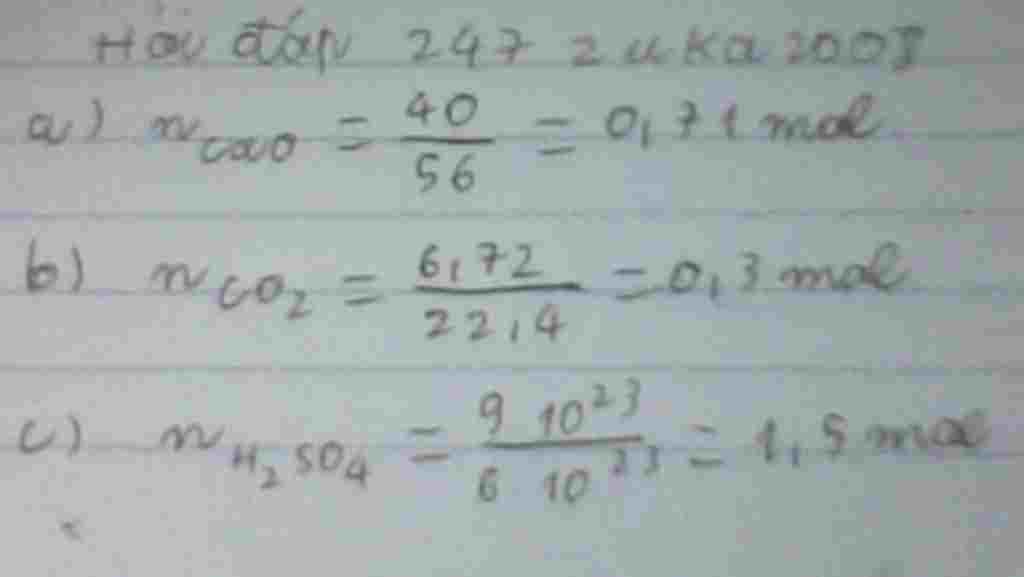 Hỏi đáp 247 zuka2008
a) nCaO = 40/56 = 0,71 mol
b) nCO2 = 6,72/22,4 = 0,3 mol
c) nH2SO4 = 9 10^23/6 10^23 = 1,5 mol